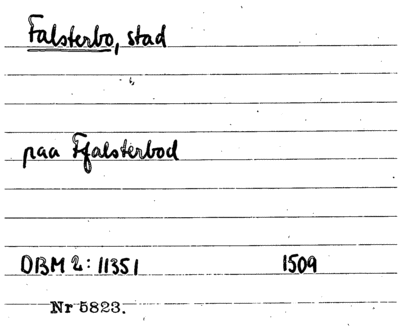 Falsterbo, stad
paa Ffalsterbod
DBM 2: 11351 1509
Nr 5823.